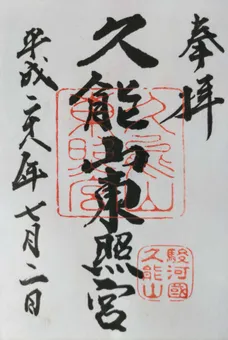 奉拝
久能山東照宮
平成二十八年七月二日
久能山
東照宮
駿河國
久能山